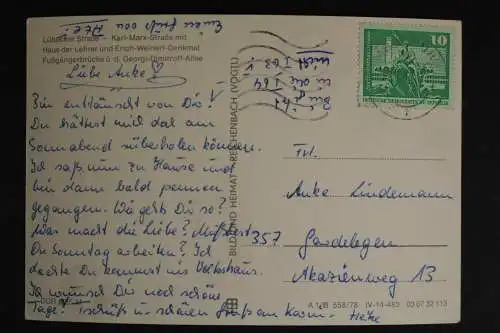 Einen Gruß von
Atze!
Lübecker Straße – Karl-Marx-Straße mit
Haus der Lehrer und Erich-Weinert-Denkmal
Fußgängerbrücke ü. d. Georgi-Dimitroff-Allee
Liebe Anke!
Bin enttäuscht von Dir!
Du hättest mich doch am
Sonnabend überholen können.
Ich saß nur zu Hause und
bin dann bald pennen
gegangen. Wie gehts Dir so?
Was macht die Liebe? Mußtest
Du Sonntag arbeiten? Ich
dachte Du kommst ins Volkshaus.
Ich wünsch Dir noch schöne
Tage! Tschüß u. schönen Gruß an Karin.
Heike
DDR
BILD UND HEIMAT REICHENBACH (VOGTL)
10
Frl.
Anke Lindemann
357 Gardelegen
Akazienweg 13
A 1/B 558/78 IV-14-483 03 07 32 113